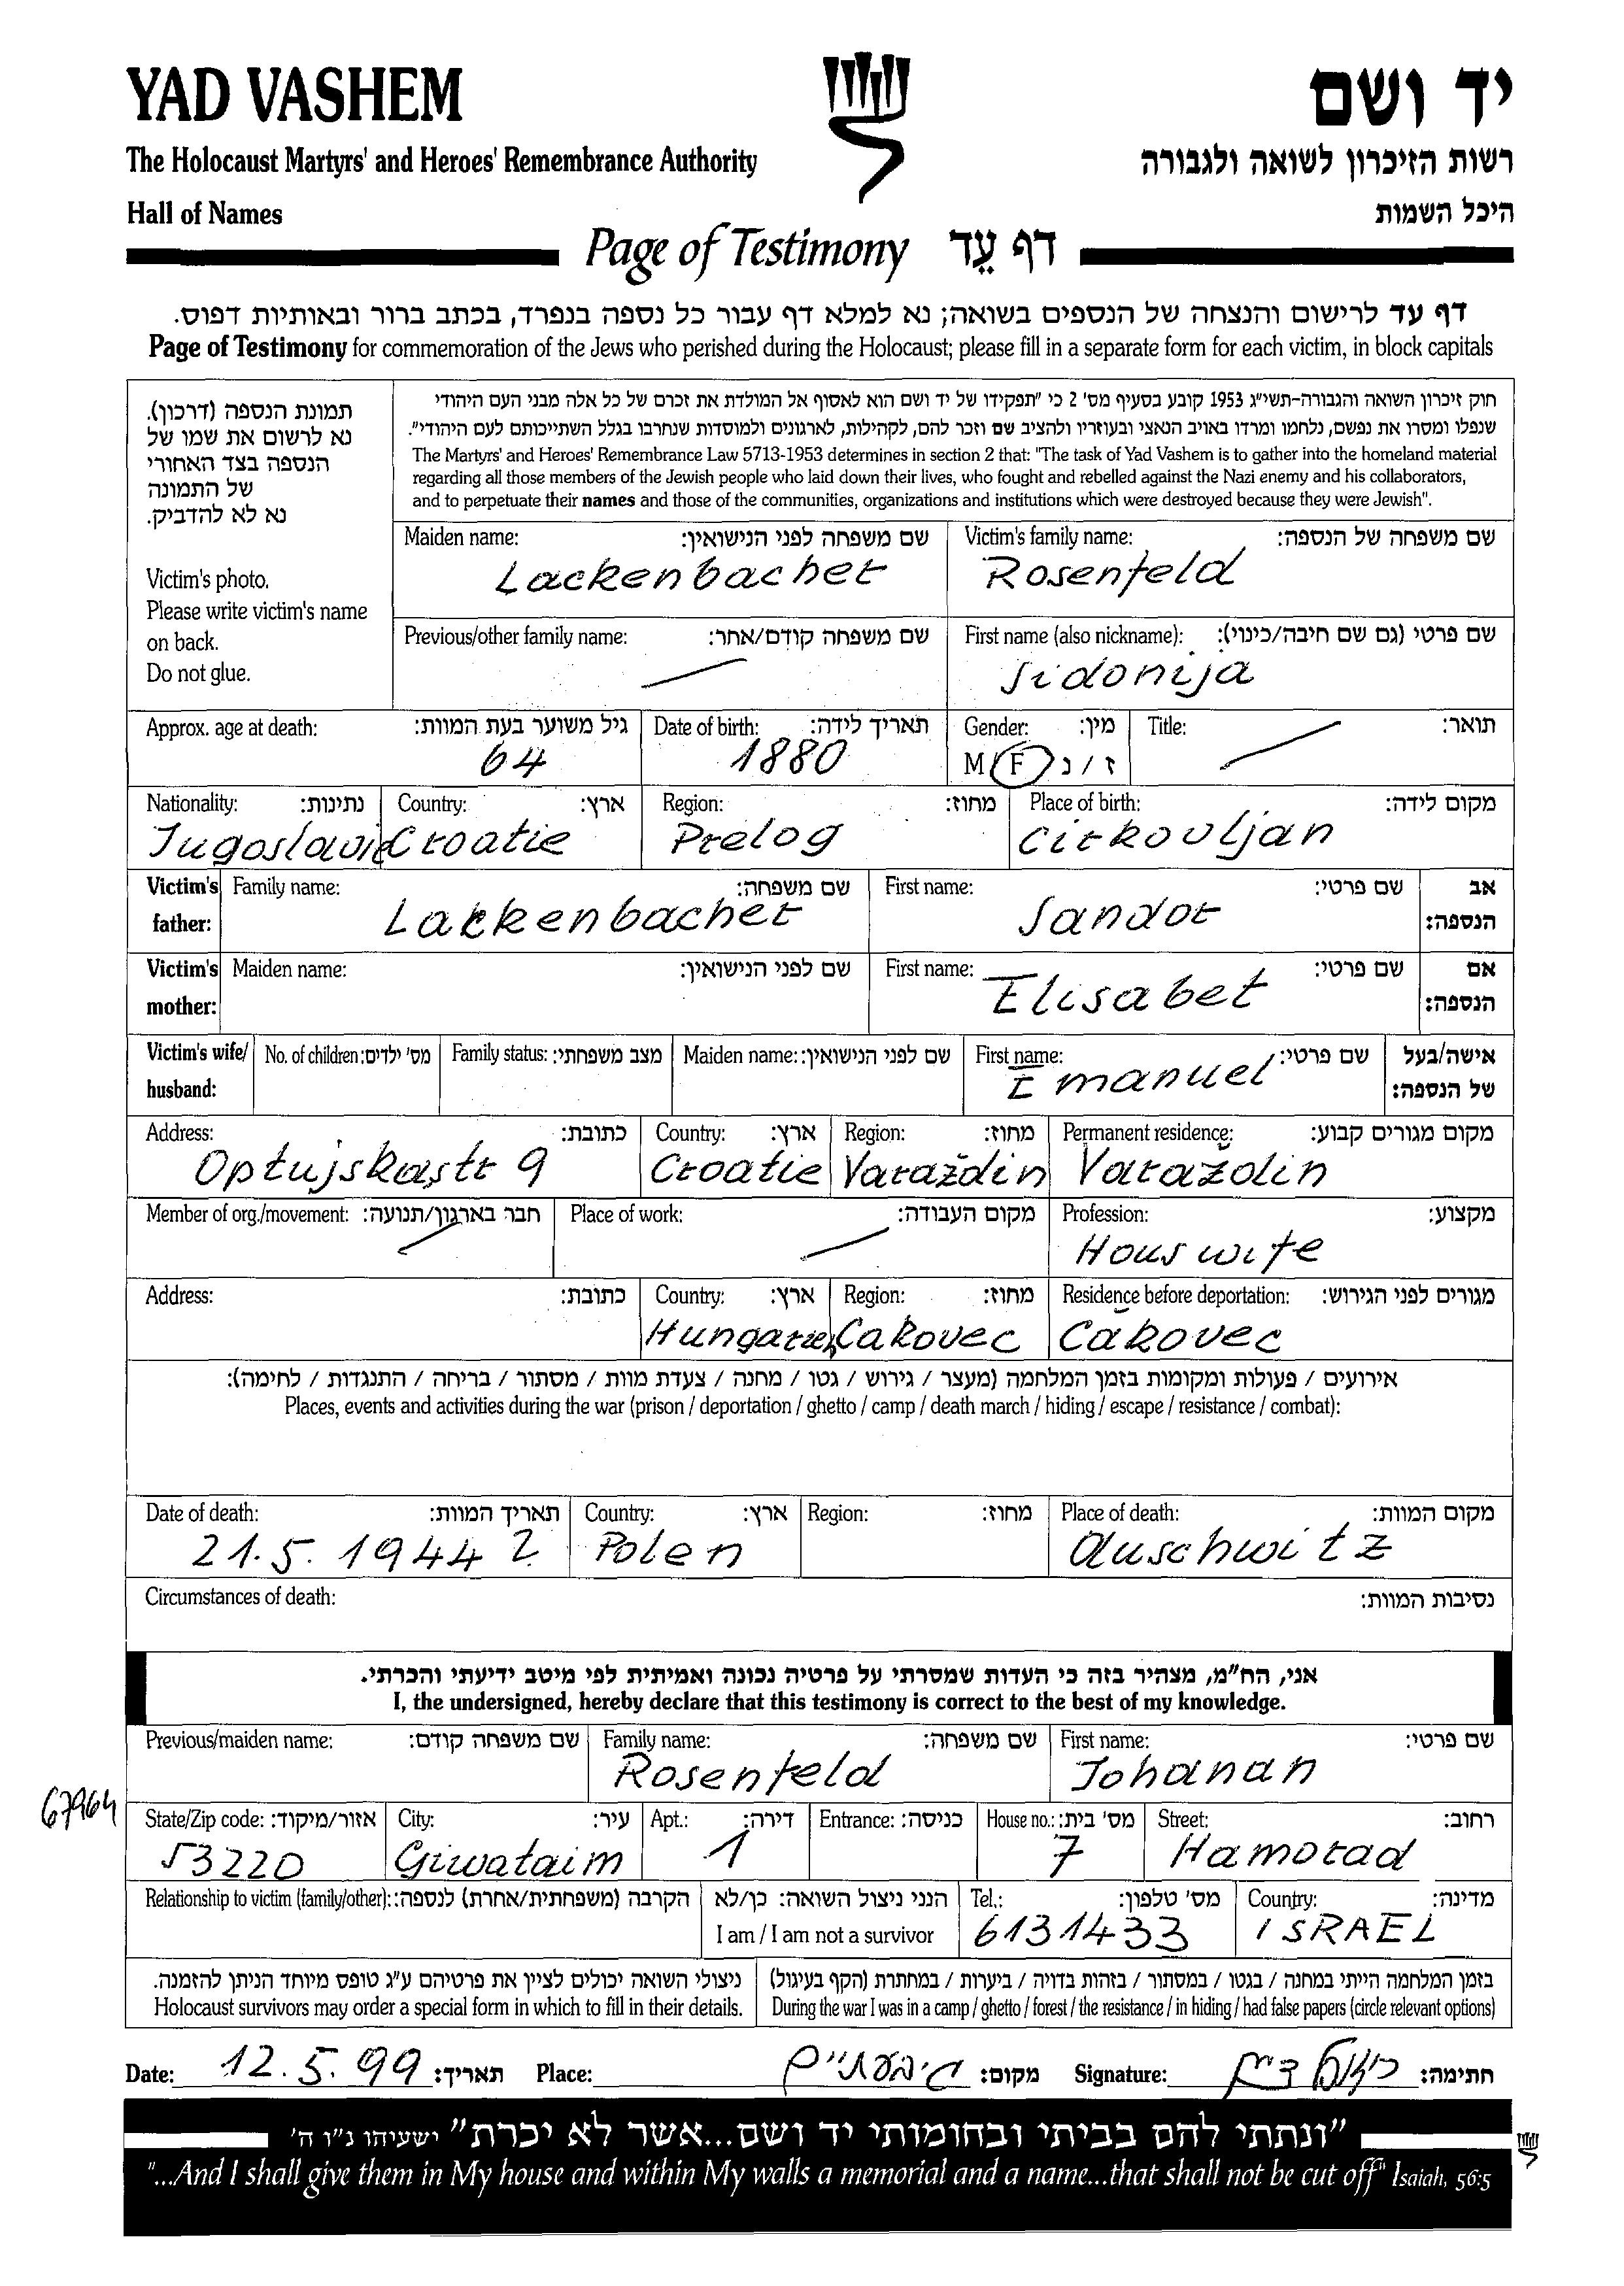 YAD VASHEM
יד ושם
The Holocaust Martyrs' and Heroes' Remembrance Authority
רשות הזיכרון לשואה ולגבורה
Hall of Names
היכל השמות
Page of Testimony דף עֵד
דף עד לרישום והנצחה של הנספים בשואה; נא למלא דף עבור כל נספה בנפרד, בכתב ברור ובאותיות דפוס.
Page of Testimony for commemoration of the Jews who perished during the Holocaust; please fill in a separate form for each victim, in block capitals
תמונת הנספה (דרכון).
נא לרשום את שמו של
הנספה בצד האחורי
של התמונה
נא לא להדביק.
Victim's photo.
Please write victim's name
on back.
Do not glue.
חוק זיכרון השואה והגבורה-תשי"ג 1953 קובע בסעיף מס' 2 כי "תפקידו של יד ושם הוא לאסוף אל המולדת את זכרם של כל אלה מבני העם היהודי
שנפלו ומסרו את נפשם, נלחמו ומרדו באויב הנאצי ובעוזריו ולהציב שם וזכר להם, לקהילות, לארגונים ולמוסדות שנחרבו בגלל השתייכותם לעם היהודי".
The Martyrs' and Heroes' Remembrance Law 5713-1953 determines in section 2 that: "The task of Yad Vashem is to gather into the homeland material
regarding all those members of the Jewish people who laid down their lives, who fought and rebelled against the Nazi enemy and his collaborators,
and to perpetuate their names and those of the communities, organizations and institutions which were destroyed because they were Jewish".
Maiden name: שם משפחה לפני הנישואין: Victim's family name: שם משפחה של הנספה:
Lackenbacher Rosenfeld
Previous/other family name: שם משפחה קודם/אחר: First name (also nickname): שם פרטי (גם שם חיבה/כינוי):
Sidonija
Approx. age at death: גיל משוער בעת המוות: Date of birth: תאריך לידה: Gender: מין: Title: תואר:
64 1880 M F ז / נ
Nationality: נתינות: Country: ארץ: Region: מחוז: Place of birth: מקום לידה:
Jugoslavie Croatie Prelog Cirkovljan
Victim's father: Family name: שם משפחה: First name: שם פרטי: אב הנספה:
Lackenbacher Sandor
Victim's mother: Maiden name: שם לפני הנישואין: First name: שם פרטי: אם הנספה:
Elisabet
Victim's wife/ husband: No. of children: מס' ילדים: Family status: מצב משפחתי: Maiden name: שם לפני הנישואין: First name: שם פרטי: אישה/בעל של הנספה:
Emanuel
Address: כתובת: Country: ארץ: Region: מחוז: Permanent residence: מקום מגורים קבוע:
Optujskastr 9 Croatie Varaždin Varaždin
Member of org./movement: חבר בארגון/תנועה: Place of work: מקום העבודה: Profession: מקצוע:
Houswife
Address: כתובת: Country: ארץ: Region: מחוז: Residence before deportation: מגורים לפני הגירוש:
Hungarien Čakovec Čakovec
אירועים / פעולות ומקומות בזמן המלחמה (מעצר / גירוש / גטו / מחנה / צעדת מוות / מסתור / בריחה / התנגדות / לחימה):
Places, events and activities during the war (prison / deportation / ghetto / camp / death march / hiding / escape / resistance / combat):
Date of death: תאריך המוות: Country: ארץ: Region: מחוז: Place of death: מקום המוות:
21.5.1944 ? Polen Auschwitz
Circumstances of death: נסיבות המוות:
אני, הח"מ, מצהיר בזה כי העדות שמסרתי על פרטיה נכונה ואמיתית לפי מיטב ידיעתי והכרתי.
I, the undersigned, hereby declare that this testimony is correct to the best of my knowledge.
Previous/maiden name: שם משפחה קודם: Family name: שם משפחה: First name: שם פרטי:
Rosenfeld Johanan
67964
State/Zip code: אזור/מיקוד: City: עיר: Apt.: דירה: Entrance: כניסה: House no.: מס' בית: Street: רחוב:
53220 Giwataim 1 7 Hamorad
Relationship to victim (family/other): הקרבה (משפחתית/אחרת) לנספה: הנני ניצול השואה: כן/לא Tel.: מס' טלפון: Country: מדינה:
I am / I am not a survivor 6131433 ISRAEL
ניצולי השואה יכולים לציין את פרטיהם ע"ג טופס מיוחד הניתן להזמנה. בזמן המלחמה הייתי במחנה / בגטו / במסתור / בזהות בדויה / ביערות / במחתרת (הקף בעיגול)
Holocaust survivors may order a special form in which to fill in their details. During the war I was in a camp / ghetto / forest / the resistance / in hiding / had false papers (circle relevant options)
Date: 12.5.99 תאריך: Place: גיבעתיים מקום: Signature: חתימה:
"ונתתי להם בביתי ובחומותי יד ושם...אשר לא יכרת" ישעיהו נ"ו ה'
"...And I shall give them in My house and within My walls a memorial and a name...that shall not be cut off" Isaiah, 56:5